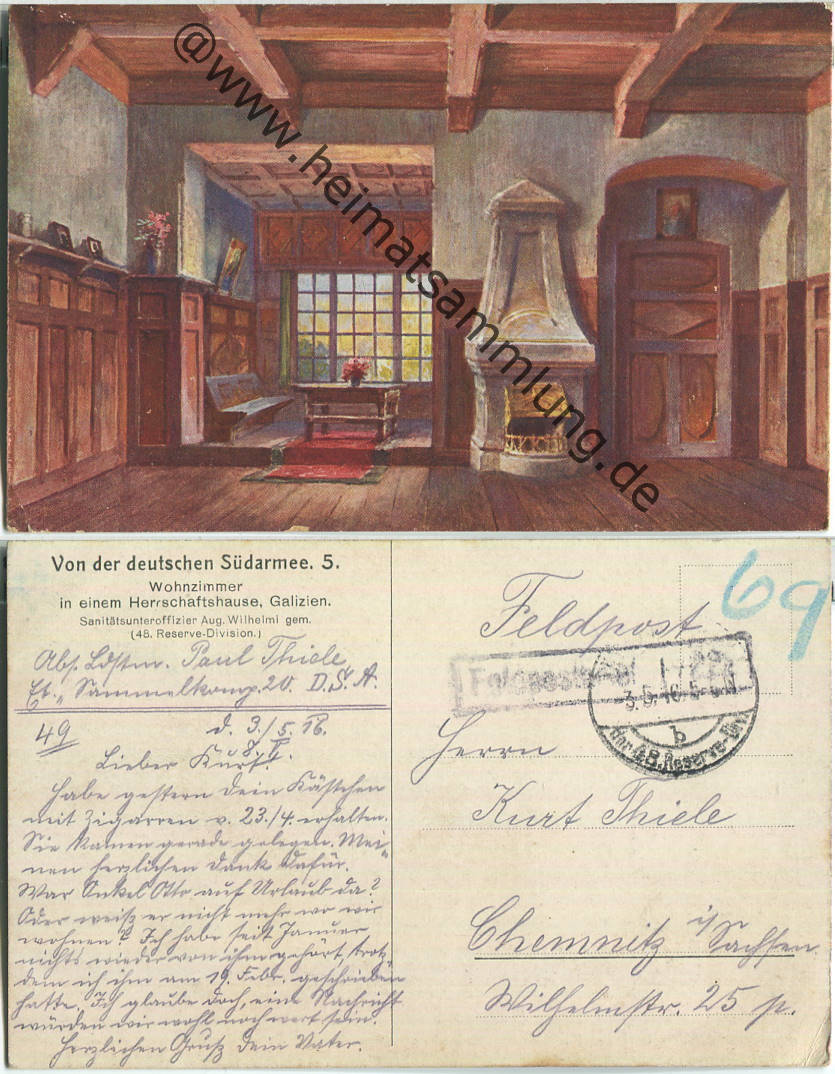 @www.heimatsammlung.de
Von der deutschen Südarmee. 5.
Wohnzimmer
in einem Herrschaftshause, Galizien.
Sanitätsunteroffizier Aug. Wilhelmi gem.
(48. Reserve-Division.)
Abs. Ldstm. Paul Thiele
Et. Sammelkomp. 20. D.S.A.
49
d. 3./5. 16.
Lieber Kurt!
Habe gestern Dein Kästchen
mit Zigarren v. 23/4. erhalten.
Sie kamen gerade gelegen. Mei-
nen herzlichen Dank dafür.
War Onkel Otto auf Urlaub da?
Oder weiß er nicht mehr wo wir
wohnen? Ich habe seit Januar
nichts wieder von ihm gehört, trotz-
dem ich ihm am 19. Febr. geschrieben
hatte. Ich glaube doch, eine Nachricht
würden wir wohl noch wert sein.
Herzlichen Gruß Dein Vater.
69
Feldpost
3.5.16. 5-6 N
b
der 48. Reserve-Div.
Herrn
Kurt Thiele
Chemnitz i/Sachsen
Wilhelmstr. 25 p.